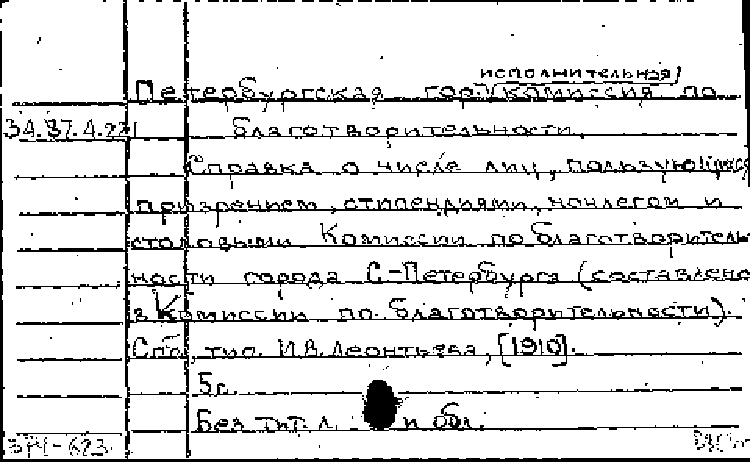 исполнительная
Петербургская гор. комиссия по
34.37.4.221 благотворительности.
Справка о числе лиц, пользующихся
призрением, стипендиями, ночлегом и
столовыми Комиссии по благотворитель-
ности города С-Петербурга (составлено
в Комиссии по благотворительности).
Спб, тип. И.В. Леонтьева, [1910].
5 с.
Без тит. л. и обл.